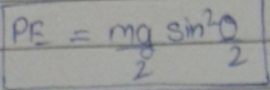 PE = mg/2 sin²θ/2